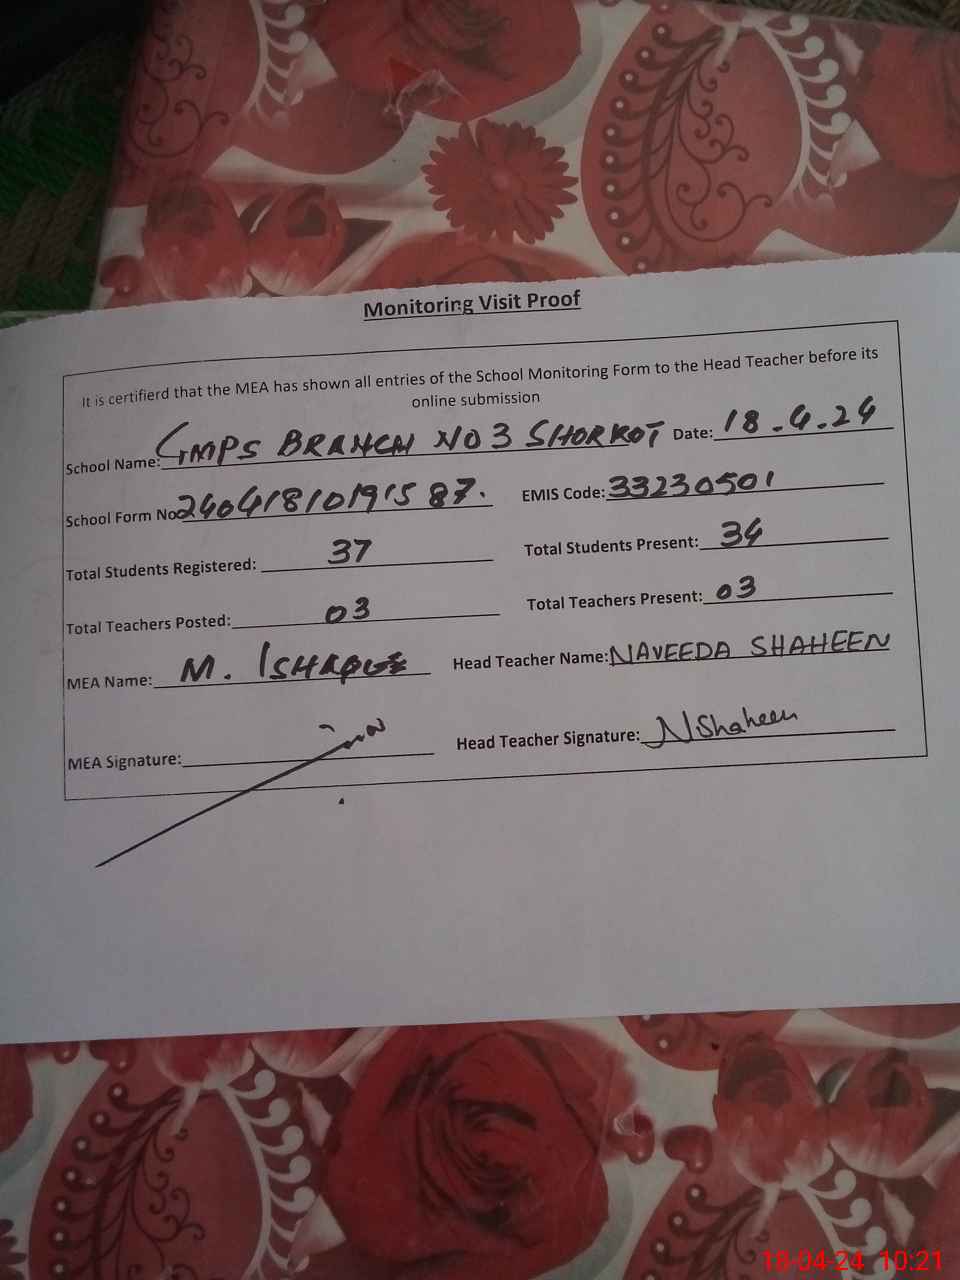 Monitoring Visit Proof
It is certifierd that the MEA has shown all entries of the School Monitoring Form to the Head Teacher before its
online submission
School Name: GMPS BRANCH NO 3 SHORKOT Date: 18.4.24
School Form No 24041810191587. EMIS Code: 33230501
Total Students Registered: 37 Total Students Present: 34
Total Teachers Posted: 03 Total Teachers Present: 03
MEA Name: M. Head Teacher Name: NAVEEDA SHAHEEN
MEA Signature: Head Teacher Signature: NShaheen
18-04-24 10:21